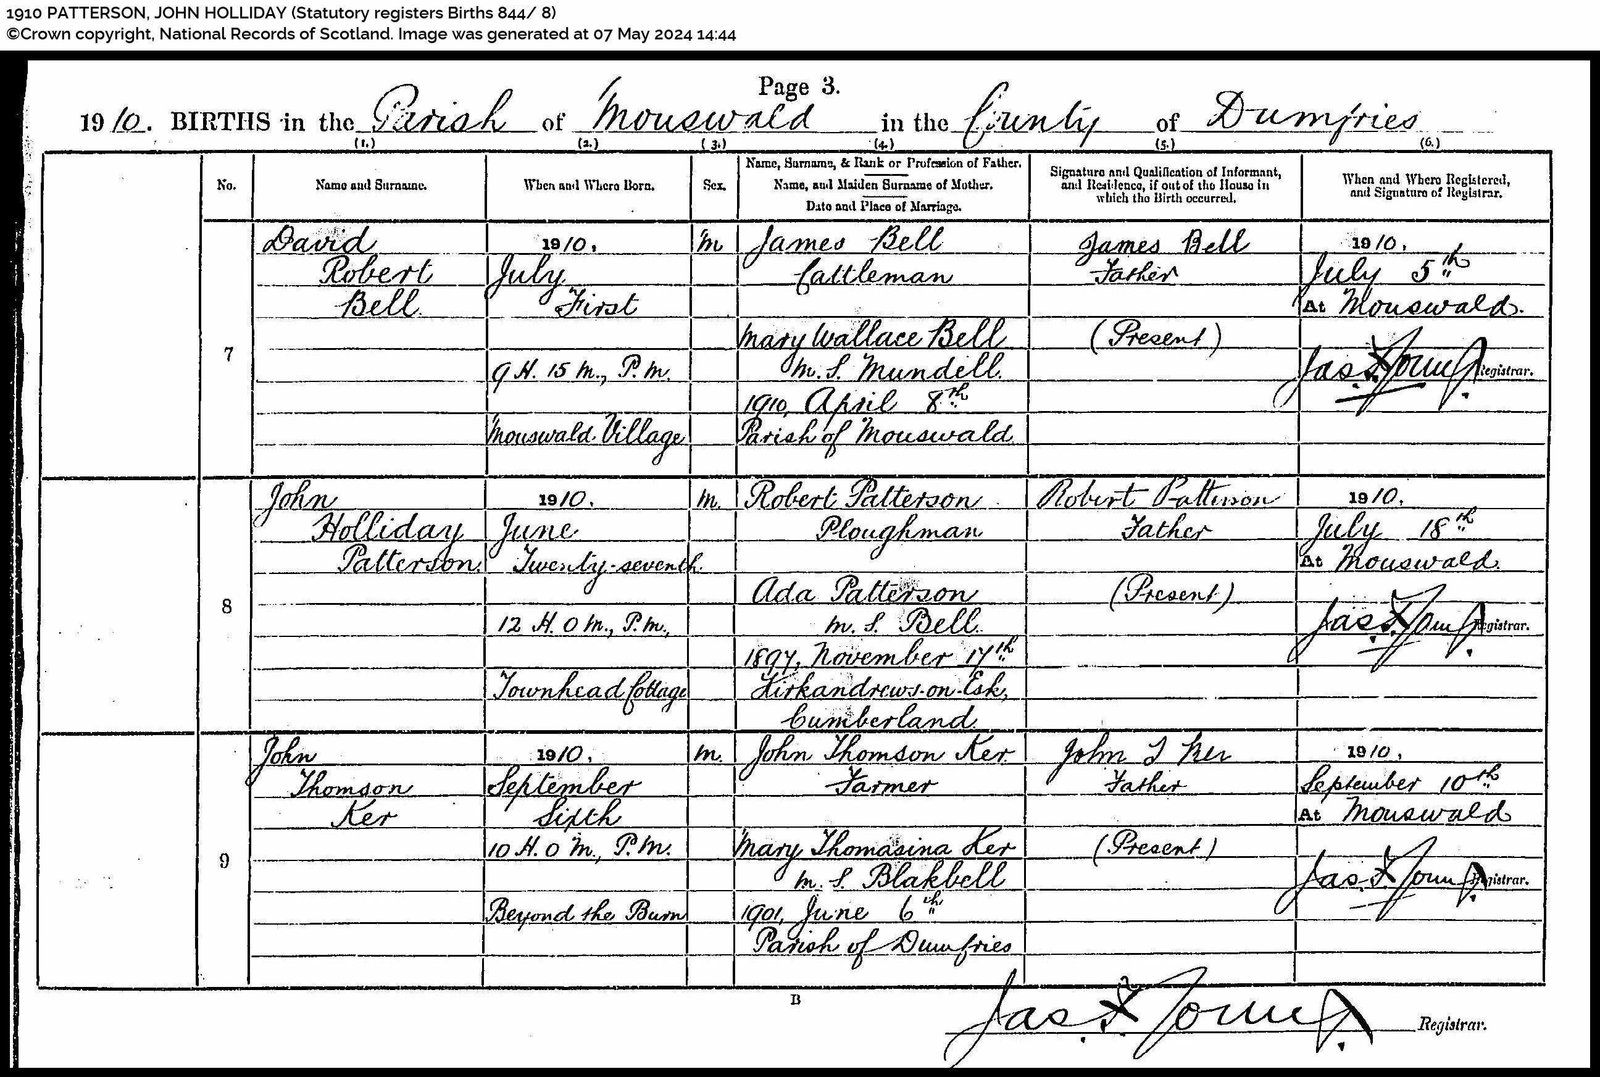 1910 PATTERSON, JOHN HOLLIDAY (Statutory registers Births 844/ 8)
©Crown copyright, National Records of Scotland. Image was generated at 07 May 2024 14:44
Page 3.
1910. BIRTHS in the Parish of Mouswald in the County of Dumfries
(1.) (2.) (3.) (4.) (5.) (6.)
No.
Name and Surname.
When and Where Born.
Sex.
Name, Surname, & Rank or Profession of Father.
Name, and Maiden Surname of Mother.
Date and Place of Marriage.
Signature and Qualification of Informant,
and Residence, if out of the House in
which the Birth occurred.
When and Where Registered,
and Signature of Registrar.
7
David
Robert
Bell
1910.
July
First
9 H. 15 m., P.m.
Mouswald Village
M
James Bell
Cattleman
Mary Wallace Bell
m. S. Mundell.
1910, April 8th
Parish of Mouswald
James Bell
Father
(Present)
1910.
July 5th
At Mouswald.
Jas.
Registrar.
8
John
Holliday
Patterson.
1910.
June
Twenty-seventh.
12 H. 0 m., P.m.,
Townhead Cottage
M.
Robert Patterson
Ploughman
Ada Patterson
m. S. Bell.
1897, November 17th
Kirkandrews-on-Esk,
Cumberland.
Robert Patterson
Father
(Present)
1910.
July 18th
At Mouswald.
Jas.
Registrar.
9
John
Thomson
Ker
1910.
September
Sixth
10 H. 0 m., P.M.
Beyond the Burn
M.
John Thomson Ker
Farmer
Mary Thomasina Ker
m. S. Blakbell
1901, June 6th
Parish of Dumfries
John T Ker
Father
(Present)
1910.
September 10th
At Mouswald
Jas.
Registrar.
B
Jas.
Registrar.